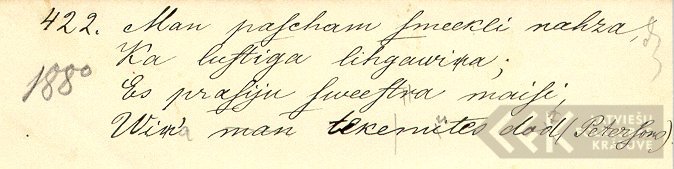 422. Man pascham smeekli nahza,
Ka lustiga lihgawiņa;
1880 Es prasiju sweestra maisi,
Wiņa man tekenites dod (Petersons)
LATVIEŠU
LFK
KRĀTUVE